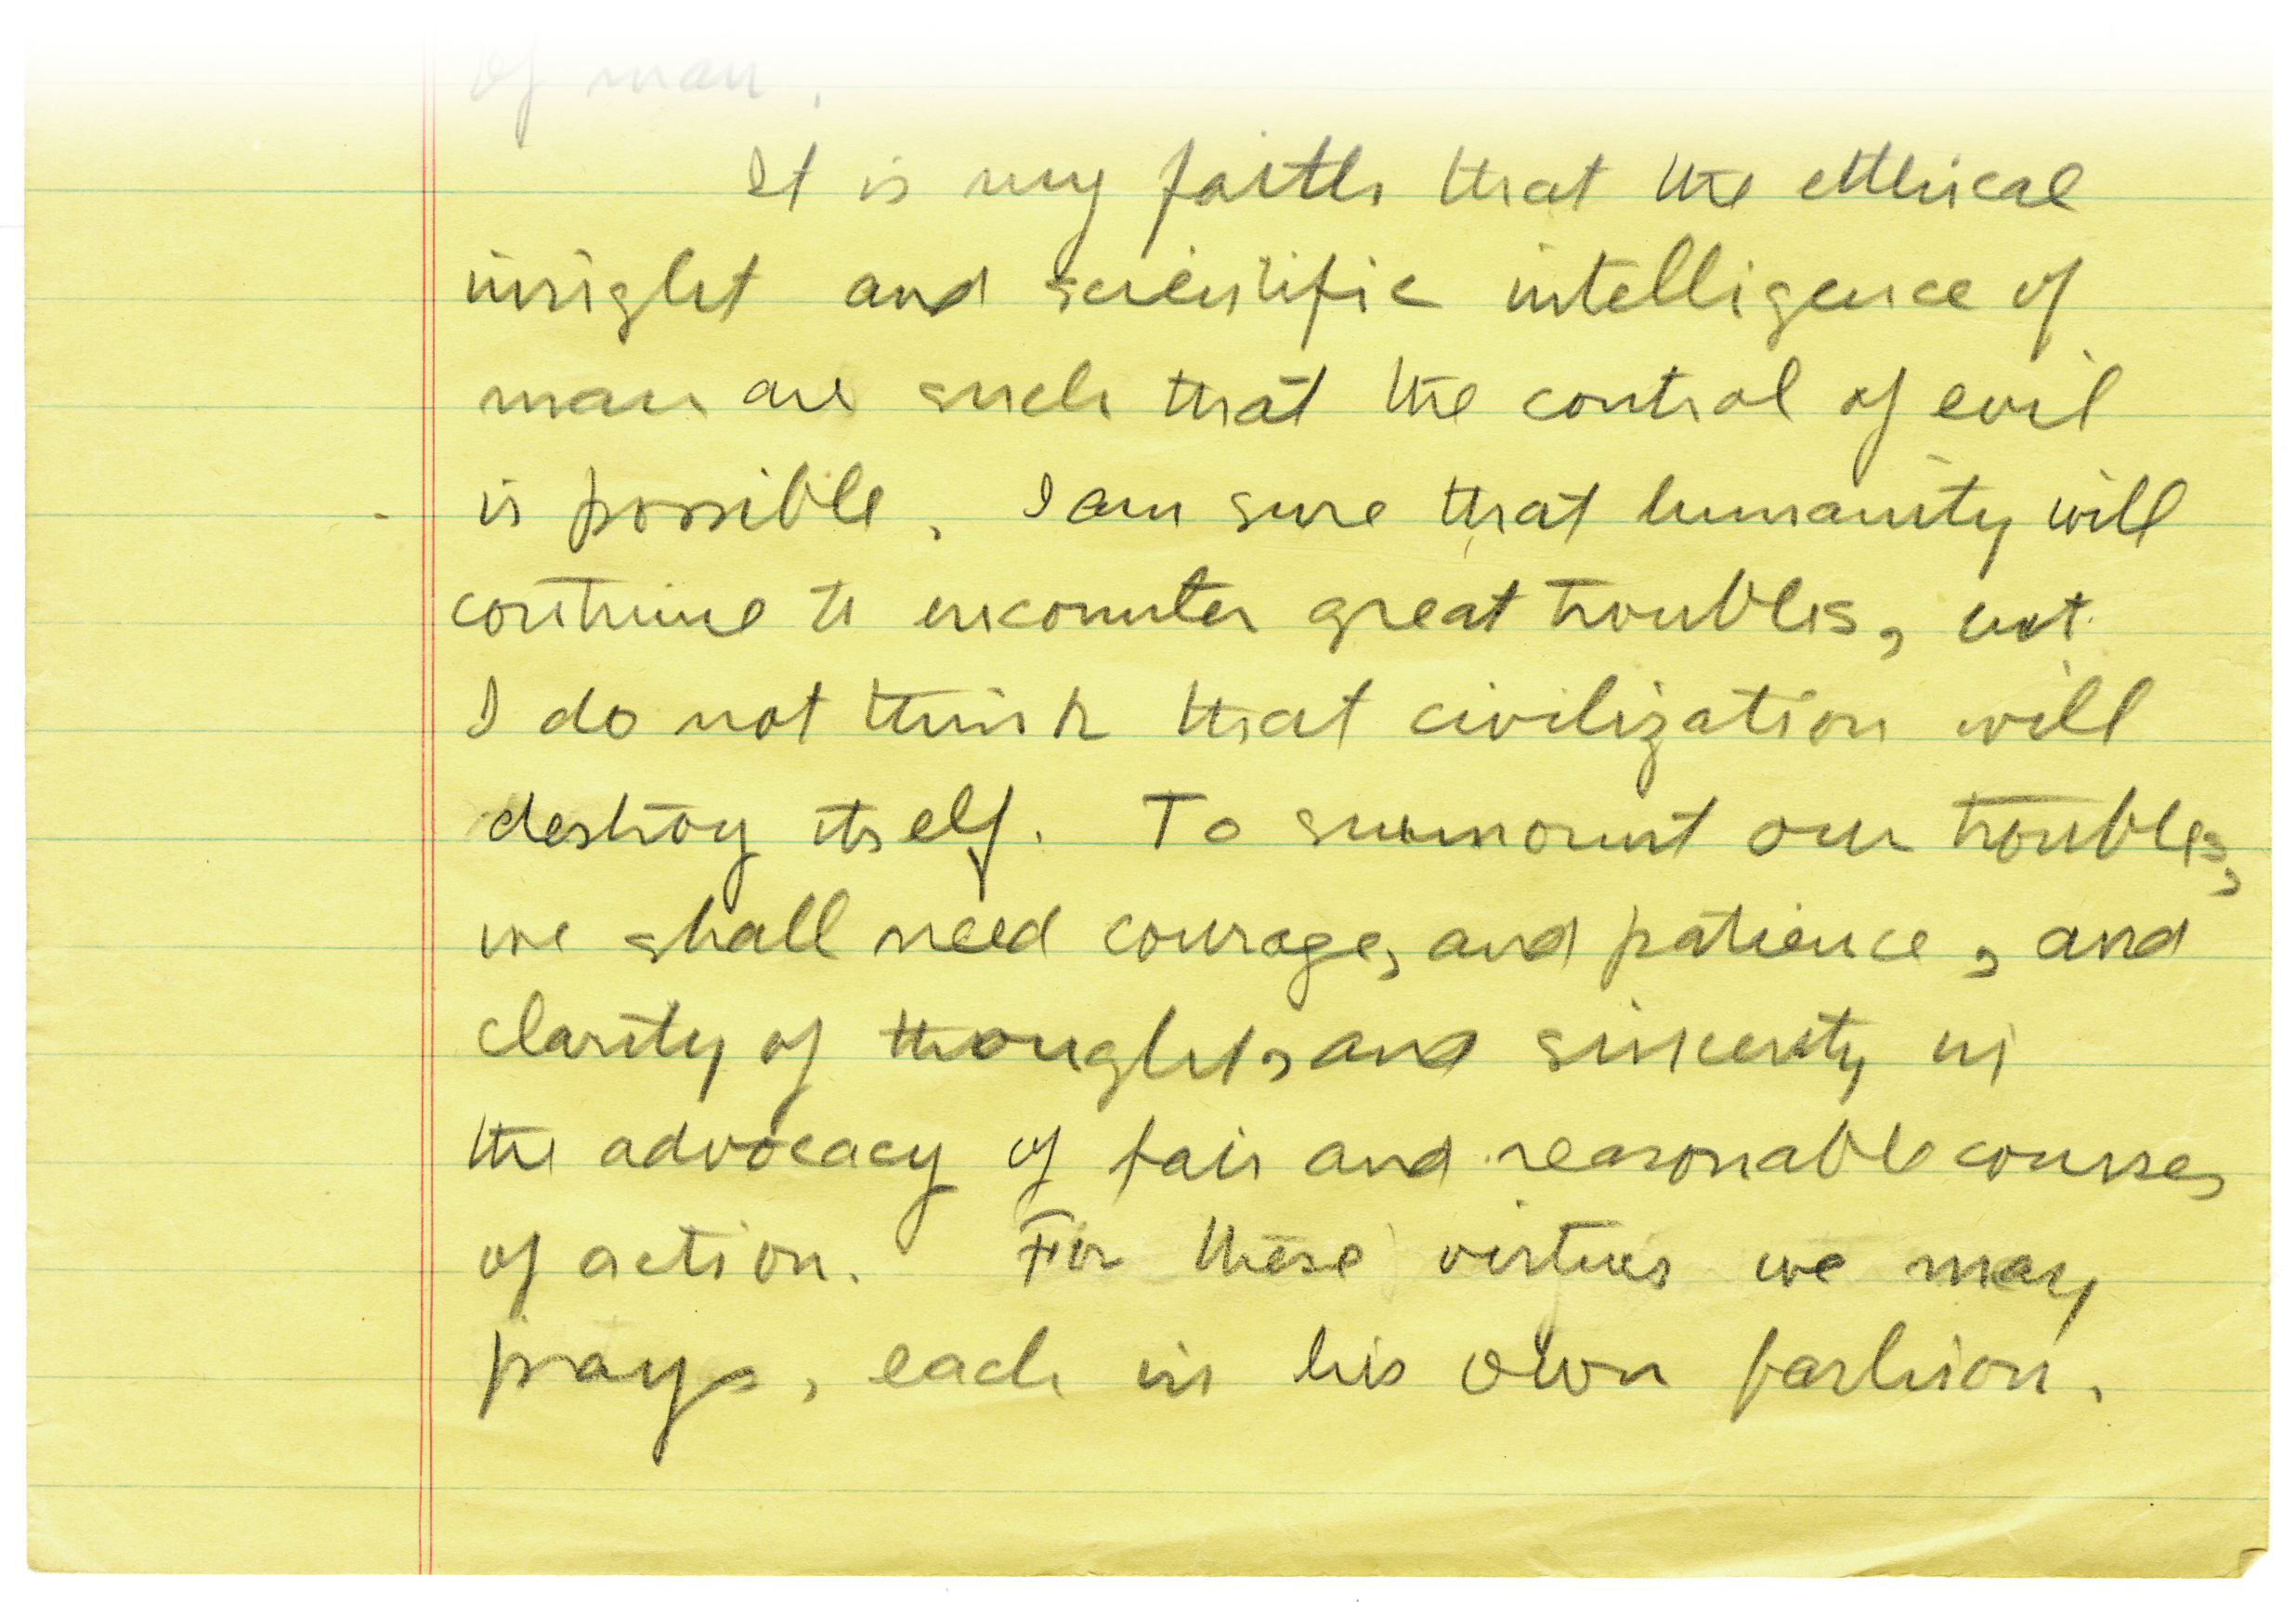 of man.
It is my faith that the ethical
insight and scientific intelligence of
man are such that the control of evil
is possible. I am sure that humanity will
continue to encounter great troubles, but
I do not think that civilization will
destroy itself. To surmount our troubles,
we shall need courage, and patience, and
clarity of thought, and sincerity in
the advocacy of fair and reasonable courses
of action. For these virtues we may
pray, each in his own fashion.